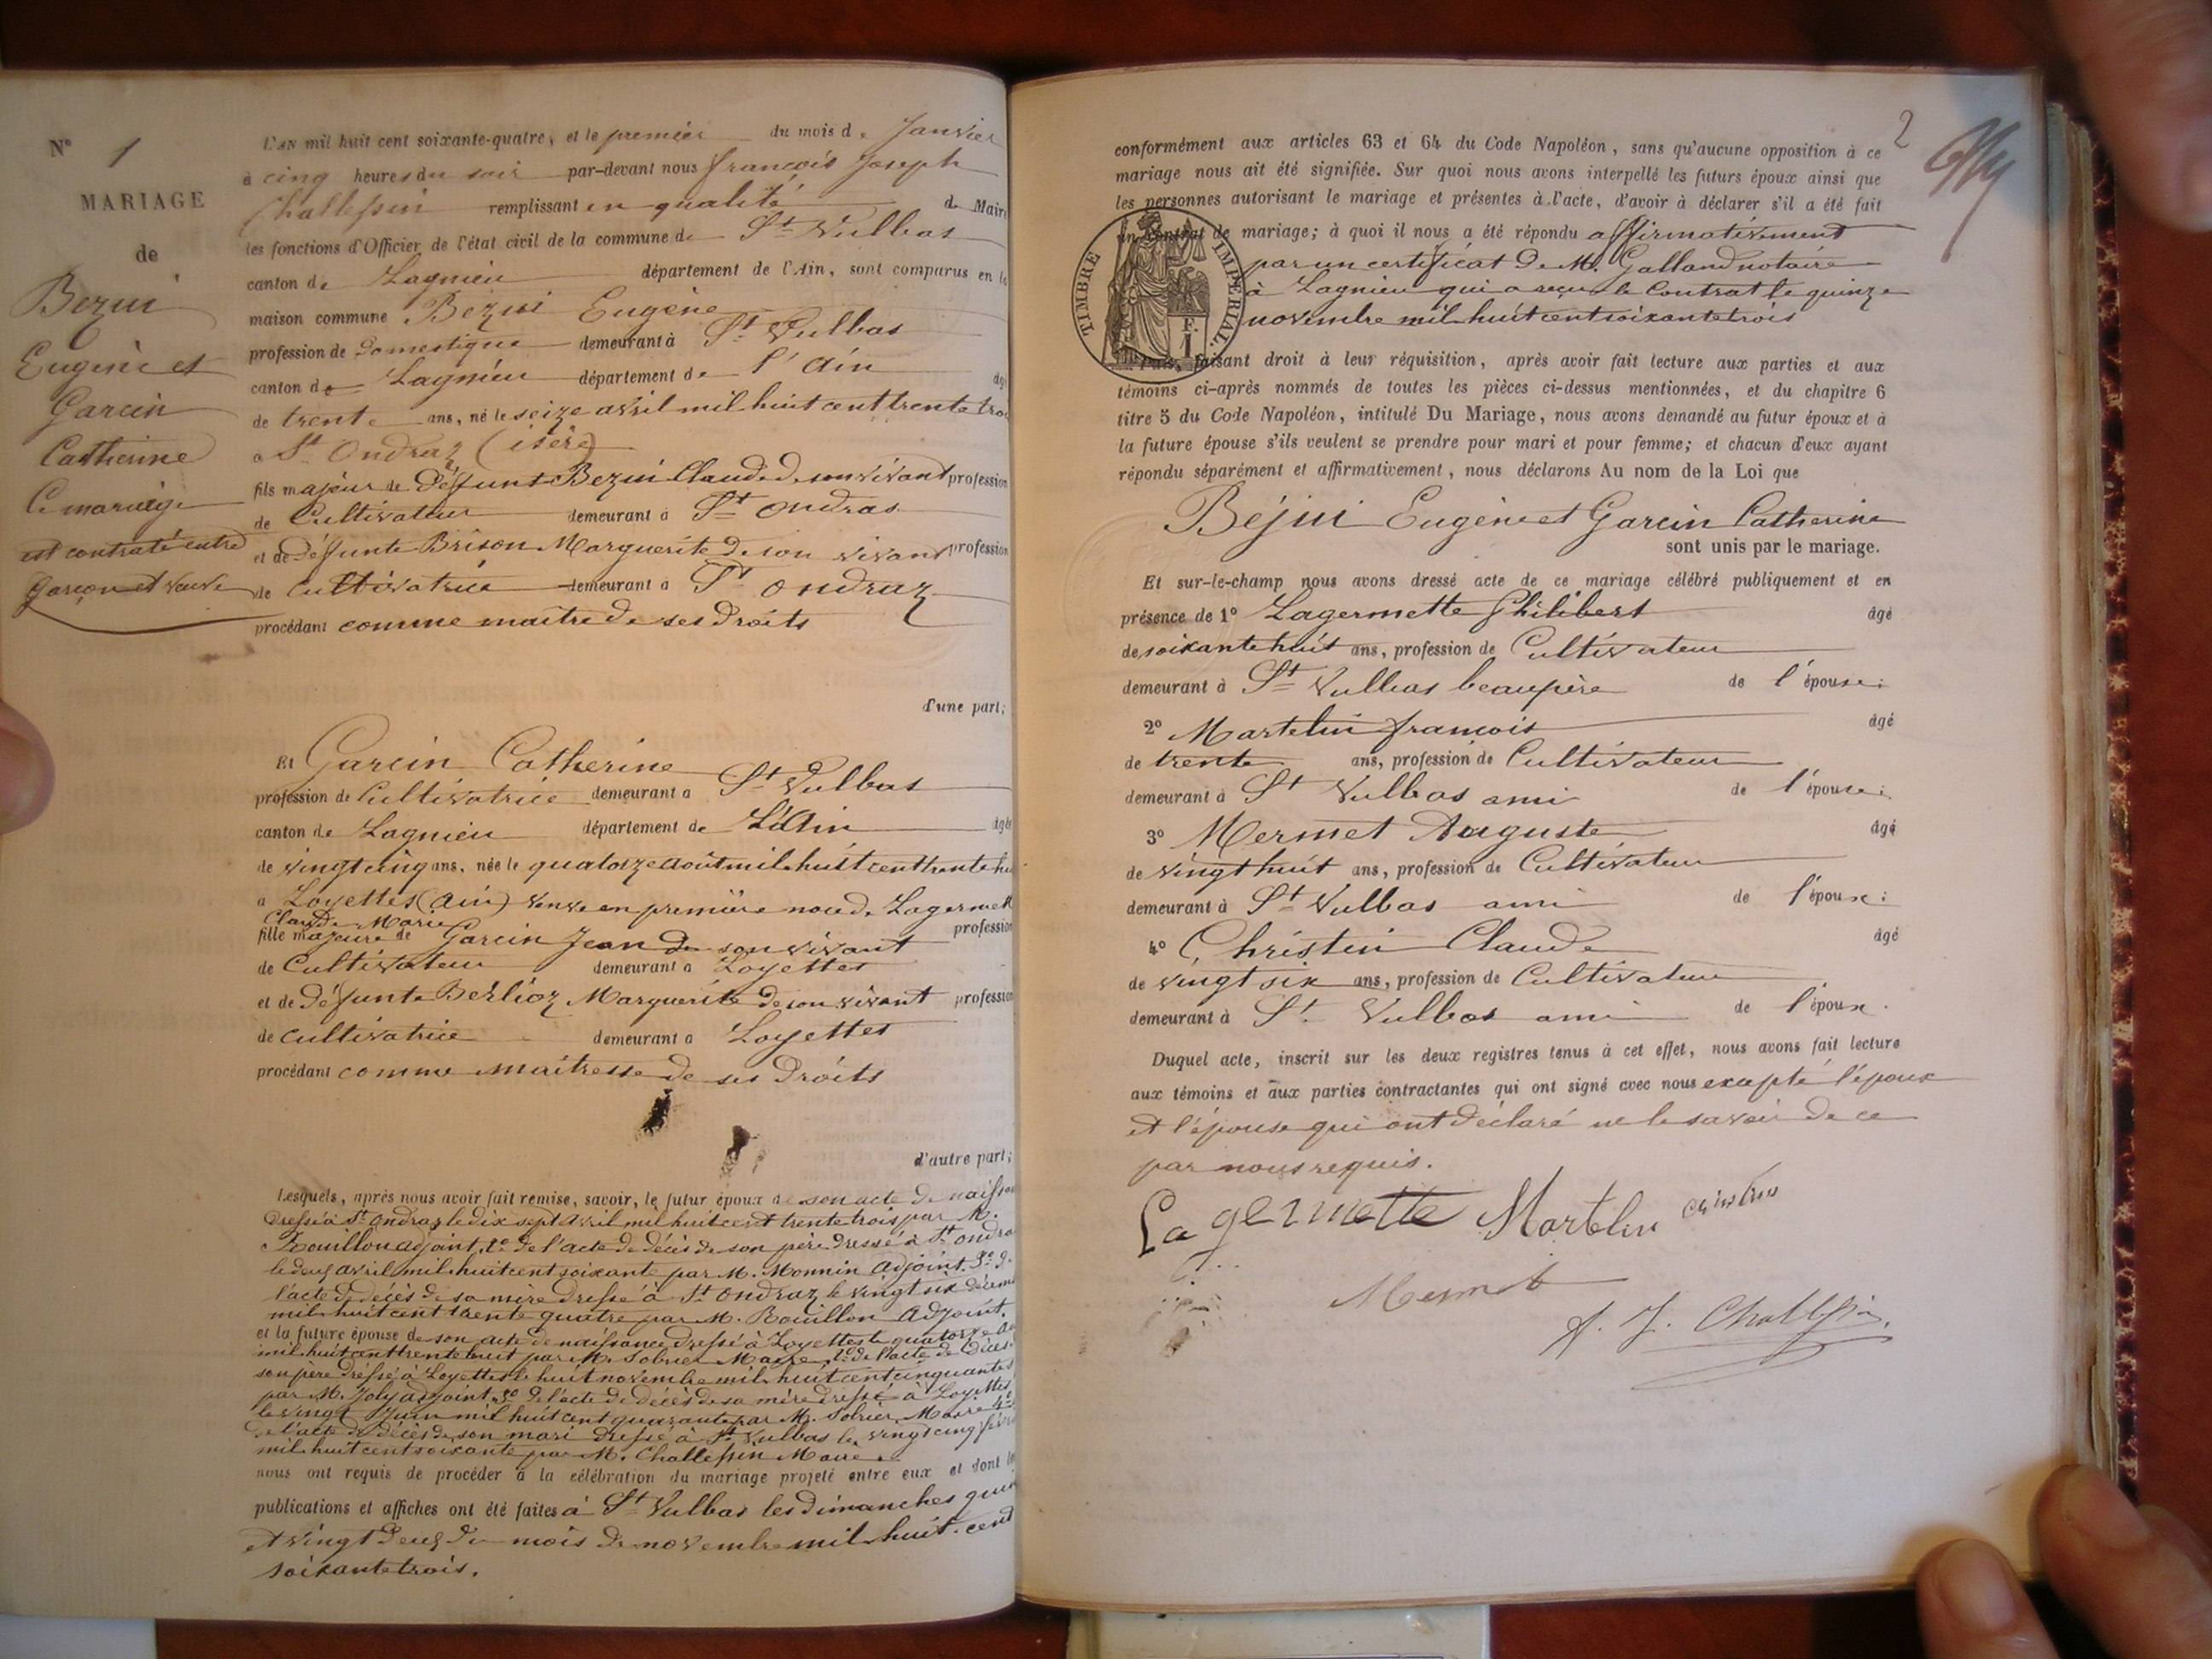 N° 1
MARIAGE
de
Bezui
Eugène et
Garcin
Catherine
Ce mariage
est contraté entre
garçon et veuve
L'AN mil huit cent soixante-quatre, et le premier du mois de Janvier
à cinq heures du soir par-devant nous françois Joseph
Challessin remplissant en qualité de Maire
les fonctions d'Officier de l'état civil de la commune de St Vulbas
canton de Lagnieu département de l'Ain, sont comparus en la
maison commune Bezui Eugène
profession de Domestique demeurant à St Vulbas
canton de Lagnieu département de l'Ain âgé
de trente ans, né le seize avril mil huit cent trente trois
à St Ondraz (isère)
fils majeur de défunt Bezui Claude de son vivant profession
de Cultivateur demeurant à St Ondras
et de défunte Brison Marguerite de son vivant profession
de Cultivatrice demeurant à St Ondraz
procédant comme maitre de ses droits
d'une part;
Et Garcin Catherine
profession de Cultivatrice demeurant à St Vulbas
canton de Lagnieu département de L'Ain âgée
de vingt cinq ans, née le quatorze août mil huit cent trente hu
à Loyettes (Ain) veuve en première noce de Lagermett
Claude Marie
fille majeure de Garcin Jean de son vivant profession
de Cultivateur demeurant à Loyettes
et de défunte Berlioz Marguerite de son vivant profession
de cultivatrice demeurant à Loyettes
procédant comme maitresse de ses droits
d'autre part;
Lesquels, après nous avoir fait remise, savoir, le futur époux de son acte de naissan
dressé à St Ondraz le dix sept avril mil huit cent trente trois par M.
Bouillon adjoint, 2° de l'acte de décès de son père dressé à St Ondra
le deux avril mil huit cent soixante par M. Monnin adjoint 3° de
l'acte de décès de sa mère dressé à St Ondraz le vingt six décem
mil huit cent trente quatre par M. Bouillon adjoint.
et la future épouse de son acte de naissance dressé à Loyettes le quatorze ao
mil huit cent trente huit par M. Sobrier Maire, 2° de l'acte de décès
son père dressé à Loyettes le huit novembre mil huit cent cinquante
par M. Joly adjoint 3° de l'acte de décès de sa mère dressé à Loyettes
le vingt Juin mil huit cent quarante par M. Sobrier Maire 4°
de l'acte de décès de son mari dressé à St Vulbas le vingt cinq fév
mil huit cent soixante par M. Challessin Maire.
nous ont requis de procéder à la célébration du mariage projeté entre eux et dont les
publications et affiches ont été faites à St Vulbas les dimanches quin
et vingt deux du mois de novembre mil huit cent
soixante trois.
2
conformément aux articles 63 et 64 du Code Napoléon, sans qu'aucune opposition à ce
mariage nous ait été signifiée. Sur quoi nous avons interpellé les futurs époux ainsi que
les personnes autorisant le mariage et présentes à l'acte, d'avoir à déclarer s'il a été fait
un contrat de mariage; à quoi il nous a été répondu affirmativement
par un certificat de M. Galland notaire
à Lagnieu qui a reçu le Contrat le quinze
novembre mil huit cent soixante trois
TIMBRE IMPÉRIAL
1 F.
Puis, faisant droit à leur réquisition, après avoir fait lecture aux parties et aux
témoins ci-après nommés de toutes les pièces ci-dessus mentionnées, et du chapitre 6
titre 5 du Code Napoléon, intitulé Du Mariage, nous avons demandé au futur époux et à
la future épouse s'ils veulent se prendre pour mari et pour femme; et chacun d'eux ayant
répondu séparément et affirmativement, nous déclarons Au nom de la Loi que
Béjui Eugène et Garcin Catherine
sont unis par le mariage.
Et sur-le-champ nous avons dressé acte de ce mariage célébré publiquement et en
présence de 1° Lagermette Philibert âgé
de soixante huit ans, profession de Cultivateur
demeurant à St Vulbas beaupère de l'épouse;
2° Martelin françois âgé
de trente ans, profession de Cultivateur
demeurant à St Vulbas ami de l'épouse;
3° Mermet Auguste âgé
de vingt huit ans, profession de Cultivateur
demeurant à St Vulbas ami de l'époux;
4° Christin Claude âgé
de vingt six ans, profession de Cultivateur
demeurant à St Vulbas ami de l'époux.
Duquel acte, inscrit sur les deux registres tenus à cet effet, nous avons fait lecture
aux témoins et aux parties contractantes qui ont signé avec nous excepté l'époux
et l'épouse qui ont déclaré ne le savoir de ce
par nous requis.
Lagermette Martelin christin
Mermet
f. J. Challessin